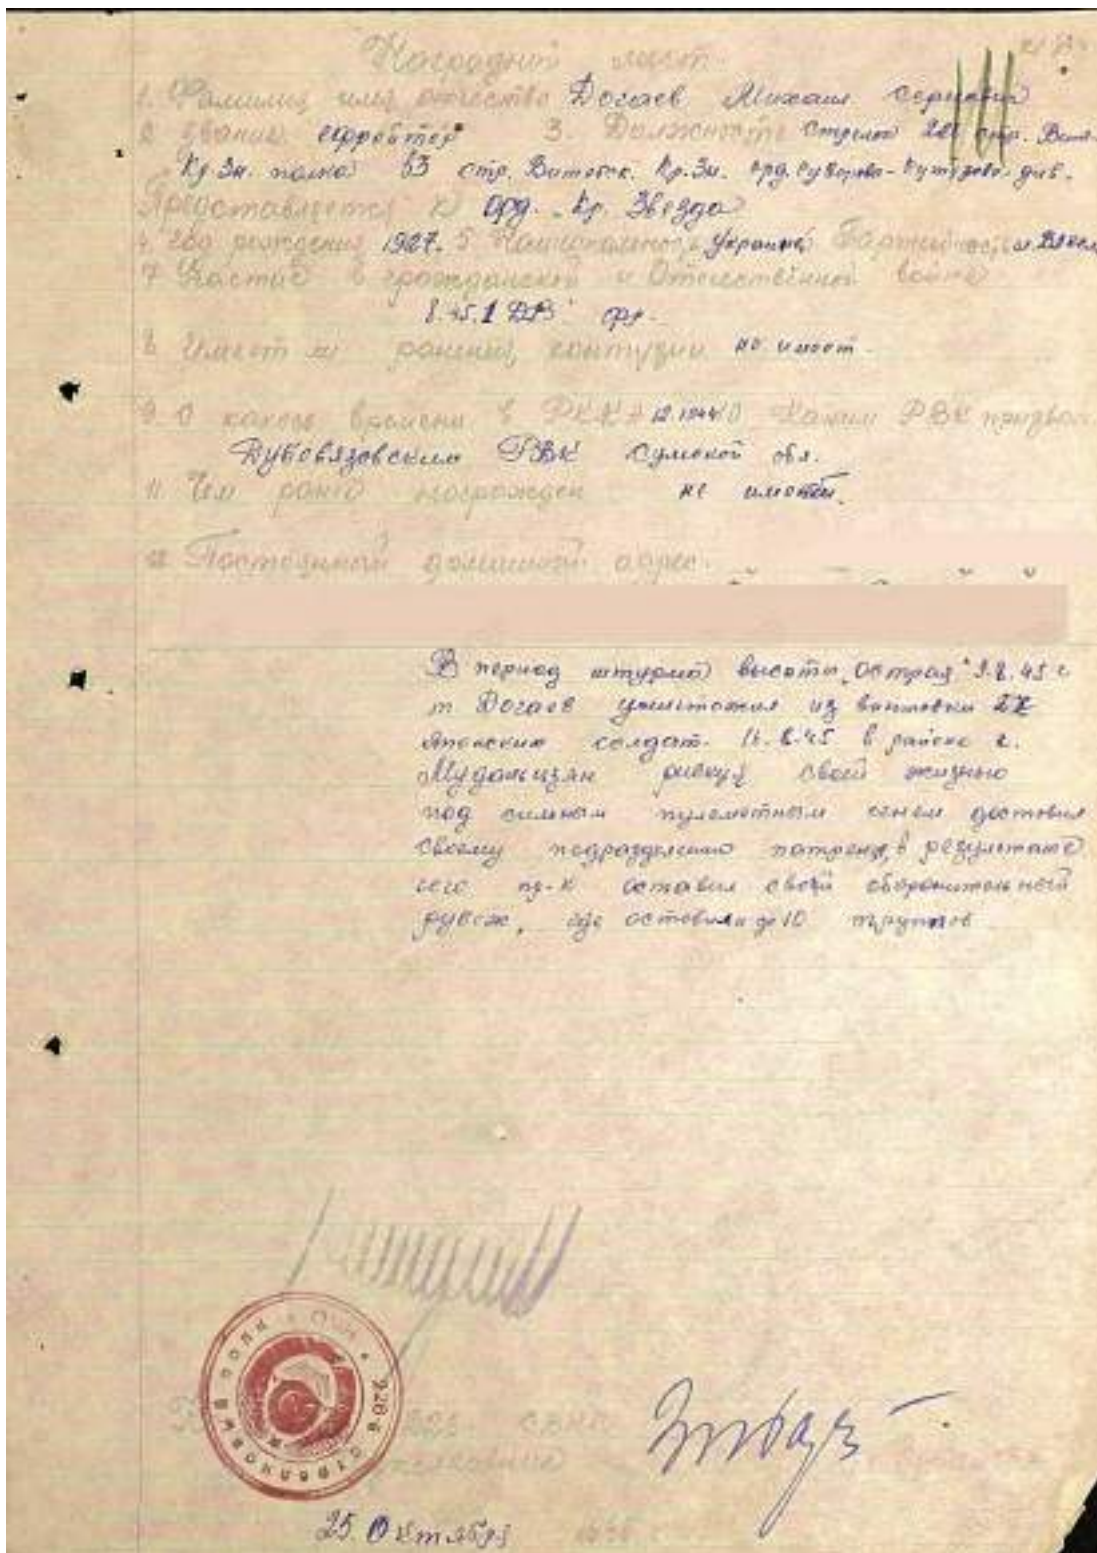 Наградной лист.
1. Фамилия имя отчество Догаев Михаил
2 Звание ефрейтор 3. Должность Стрелок стр.
Кр. Зн. полка стр. Витебск. Кр. Зн. орд. Суворова-Кутузова див.
Представляется к орд. „Кр. Звезда
4. Год рождения 1927. 5 Национальность Украинец Партийность
7 Участие в гражданской и Отечественной войне
8.45. 1 ДВ фр.
8 Имеет ли ранения, контузии не имеет.
9 С какого времени в РККА 12.1944 10 Каким РВК призван
Дубовязовским РВК Сумской обл.
11 Чем ранее награжден не имеет.
12 Постоянный домашний адрес.
В период штурма высоты „Острая" 9.8.45 г
т Догаев уничтожил из винтовки
Японских солдат. в районе г.
Мудансцзян рискуя своей жизнью
под сильным пулеметным огнем доставил
своему подразделению патроны, в результате
чего пр-к оставил свой оборонительный
рубеж, где оставили до 10 трупов
стрелковый полк
25. Октября